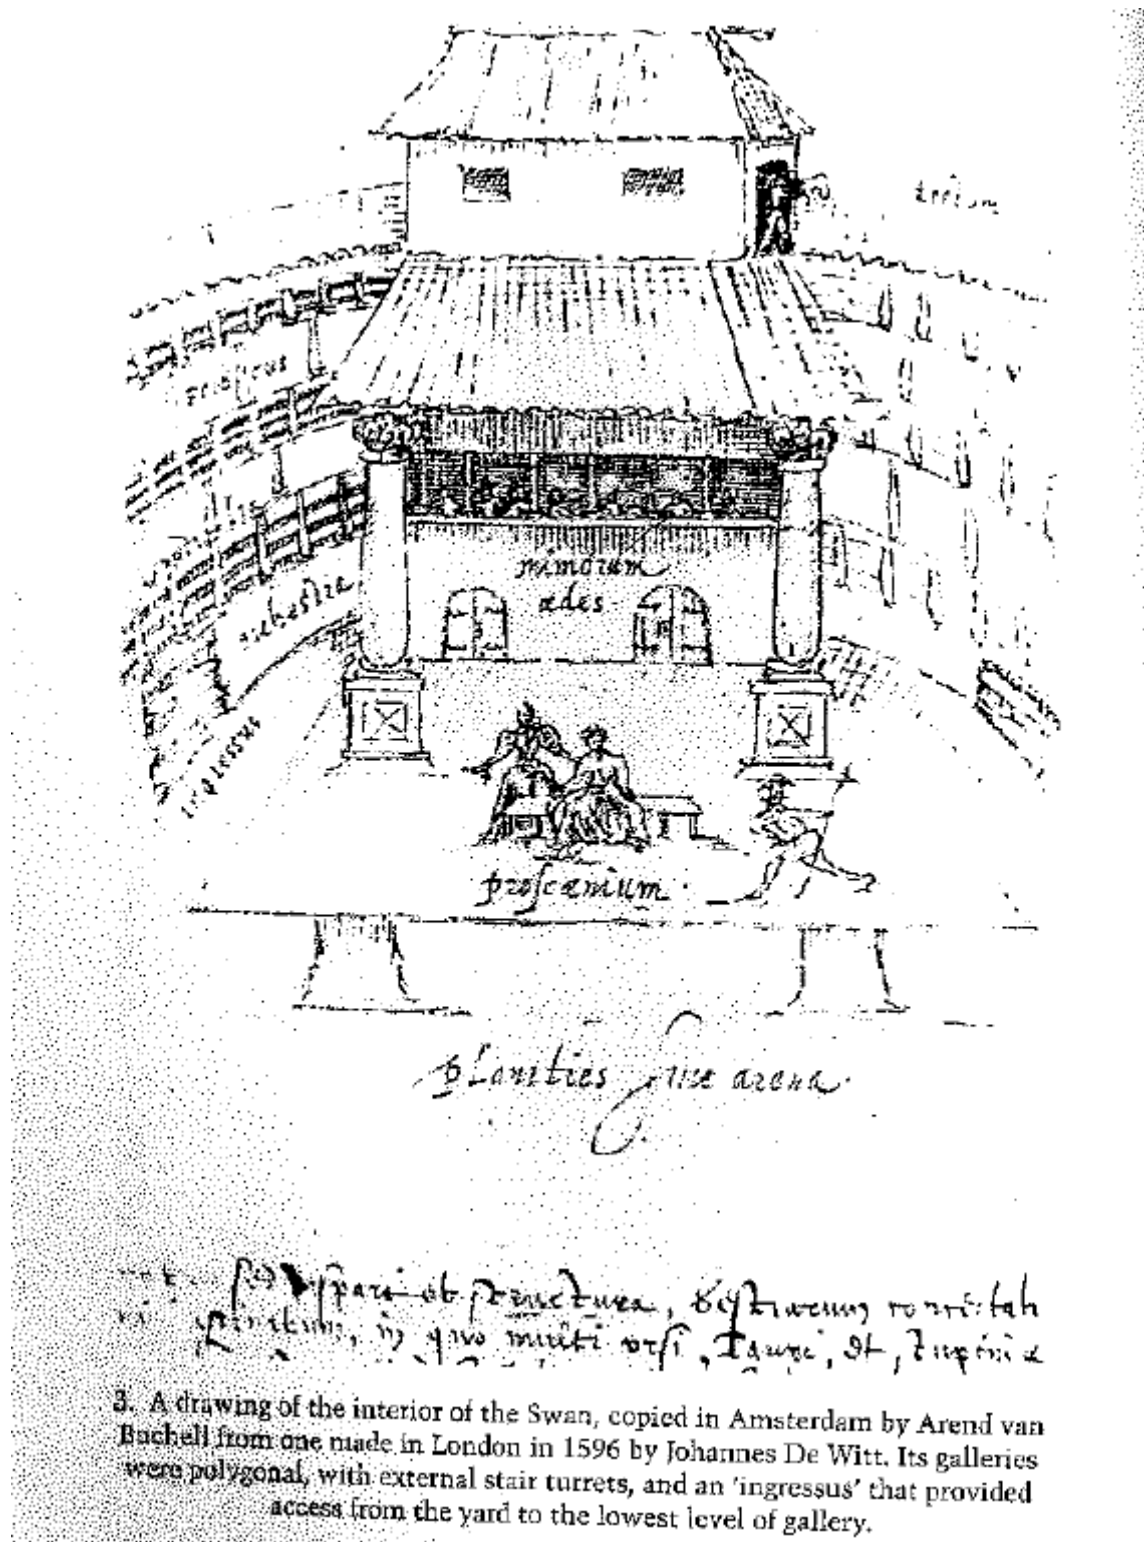 tectum
porticus
mimorum
ædes
orchestra
ingressus
proscænium
planities sive arena
structura,
in quo multi ursi, Tauri, et,
3. A drawing of the interior of the Swan, copied in Amsterdam by Arend van
Buchell from one made in London in 1596 by Johannes De Witt. Its galleries
were polygonal, with external stair turrets, and an 'ingressus' that provided
access from the yard to the lowest level of gallery.